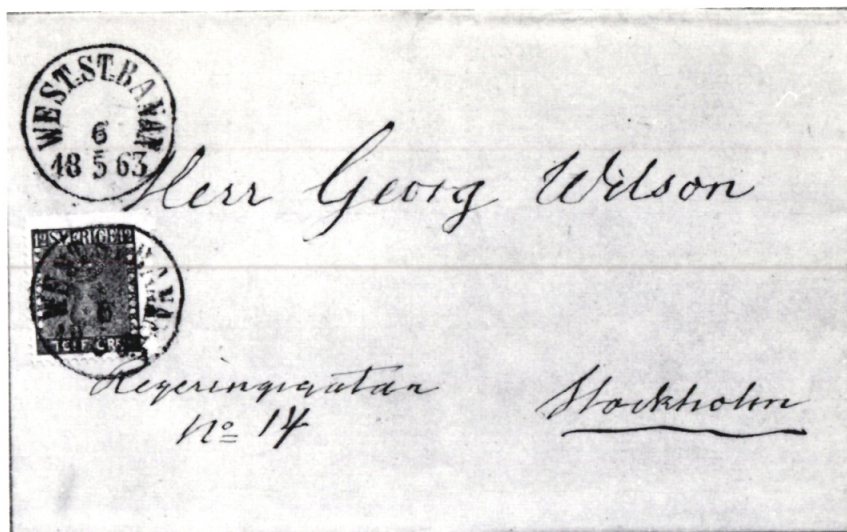 WEST.ST.BANAN
6
18 5 63
Herr Georg Wilson
12 SVERIGE 12
6
TOLF ÖRE
Regeringsgatan
No 14
Stockholm